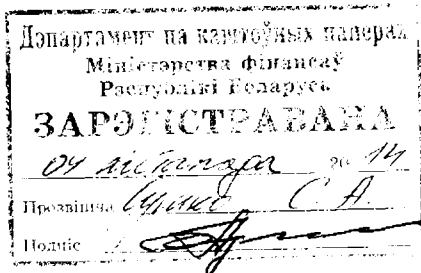 Дэпартамент па каштоўных паперах
Міністэрства фінансаў
Рэспублікі Беларусь
ЗАРЭГІСТРАВАНА
04 лістапада 2014
Прозвішча С. А.
Подпіс